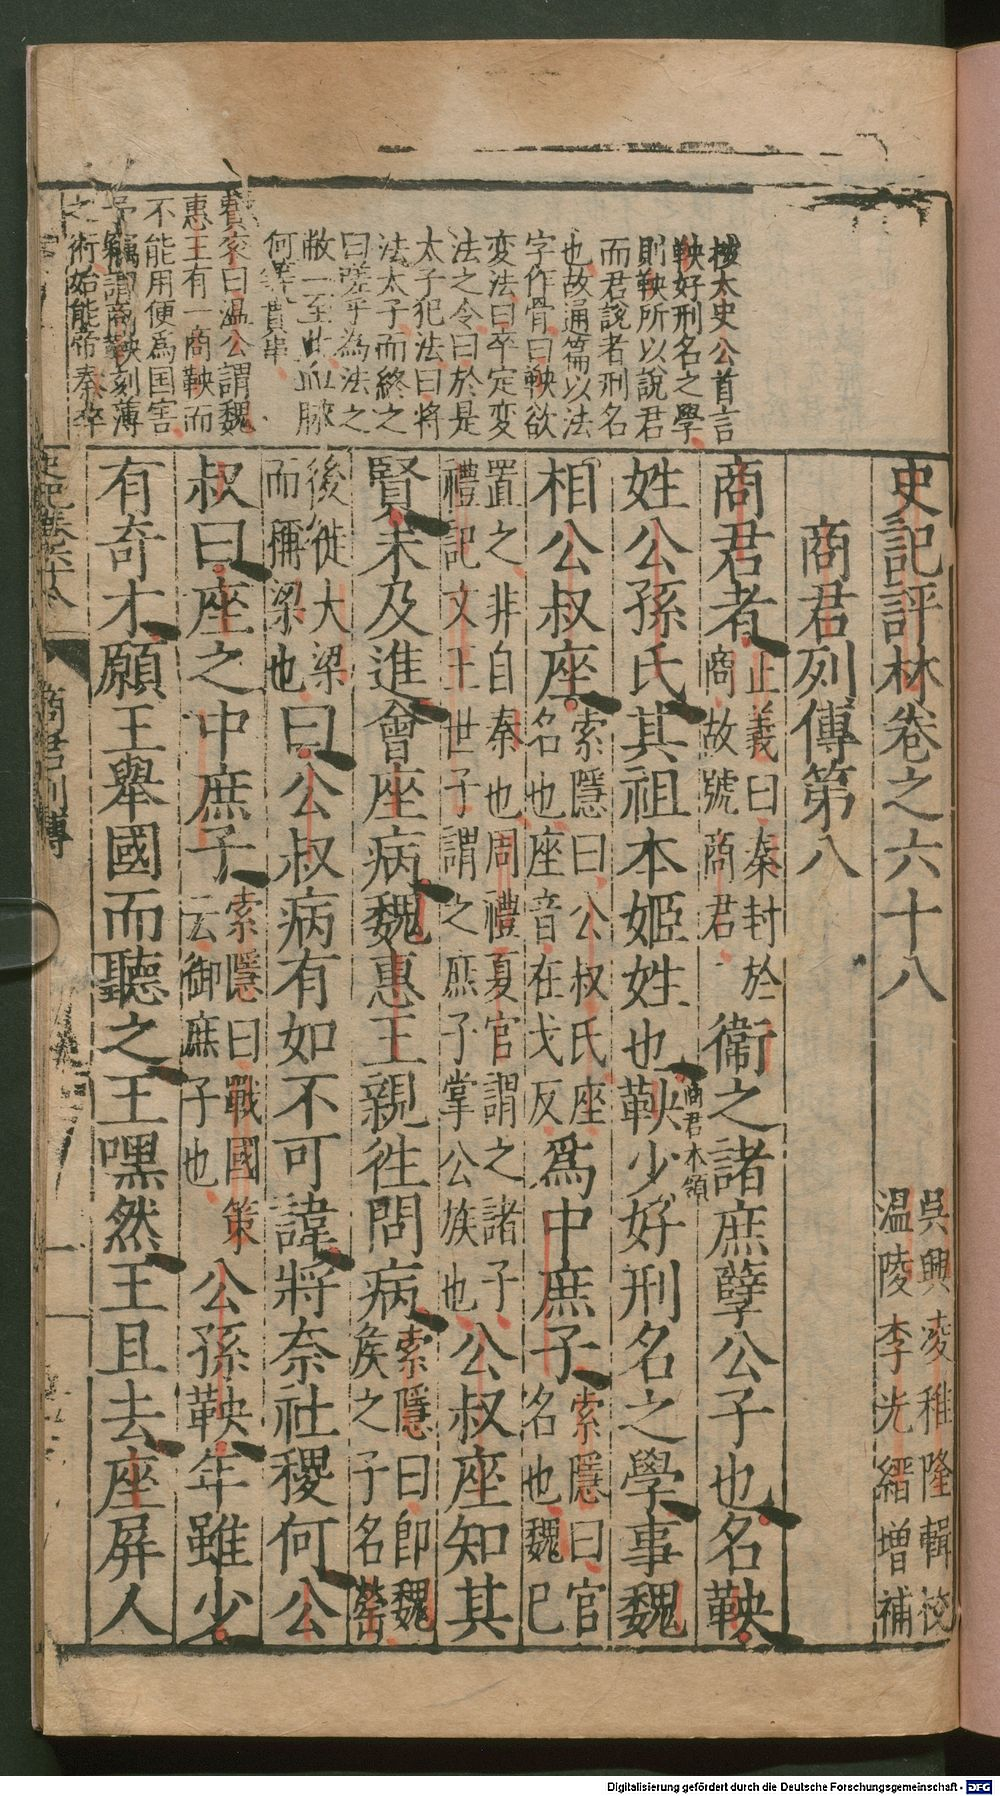 史記評林卷之六十八
吳興凌稚隆輯校
温陵李光縉增補
商君列傳第八
商君者
正義曰秦封於
商故號商君
衞之諸庶孽公子也名鞅
姓公孫氏其祖本姬姓也鞅少好刑名之學事魏
商君本領
相公叔座
索隱曰公叔氏座
名也座音在戈反
爲中庶子
索隱曰官
名也魏已
置之非自秦也周禮夏官謂之諸子
禮記文王世子謂之庶子掌公族也
公叔座知其
賢未及進會座病魏惠王親徃問病
索隱曰卽魏
矦之子名罃
後徙大梁
而稱梁也
曰公叔病有如不可諱將奈社稷何公
叔曰座之中庶子
索隱曰戰國策
云御庶子也
公孫鞅年雖少
有奇才願王舉國而聽之王嘿然王且去座屏人
按太史公首言
鞅好刑名之學
則鞅所以說君
而君說者刑名
也故通篇以法
字作骨曰鞅欲
变法曰卒定变
法之令曰於是
太子犯法曰將
法太子而終之
曰嗟乎為法之
敝一至此血脉
何等貫串
費衮曰温公謂魏
惠王有一商鞅而
不能用使為国害
予竊謂商鞅刻薄
之術始能帝秦卒
史記卷六十八
商君列傳
一
Digitalisierung gefördert durch die Deutsche Forschungsgemeinschaft - DFG